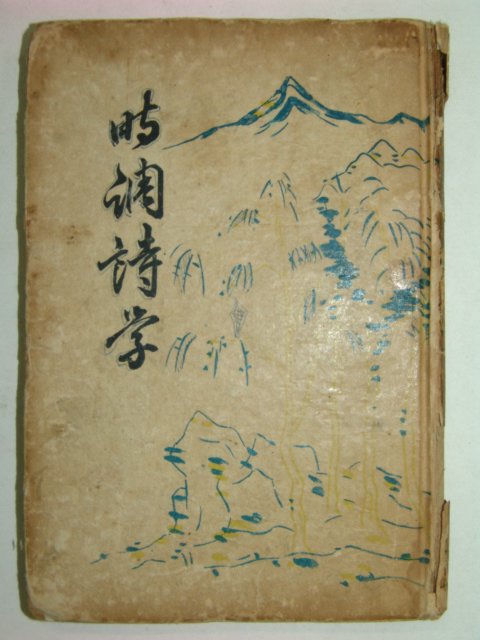 時調詩学